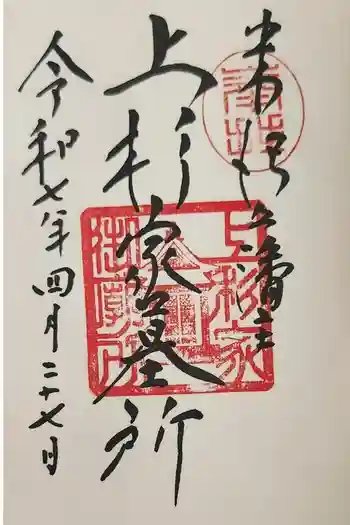 藩主
上杉家墓所
令和七年四月二十七日
上杉家
御廟所